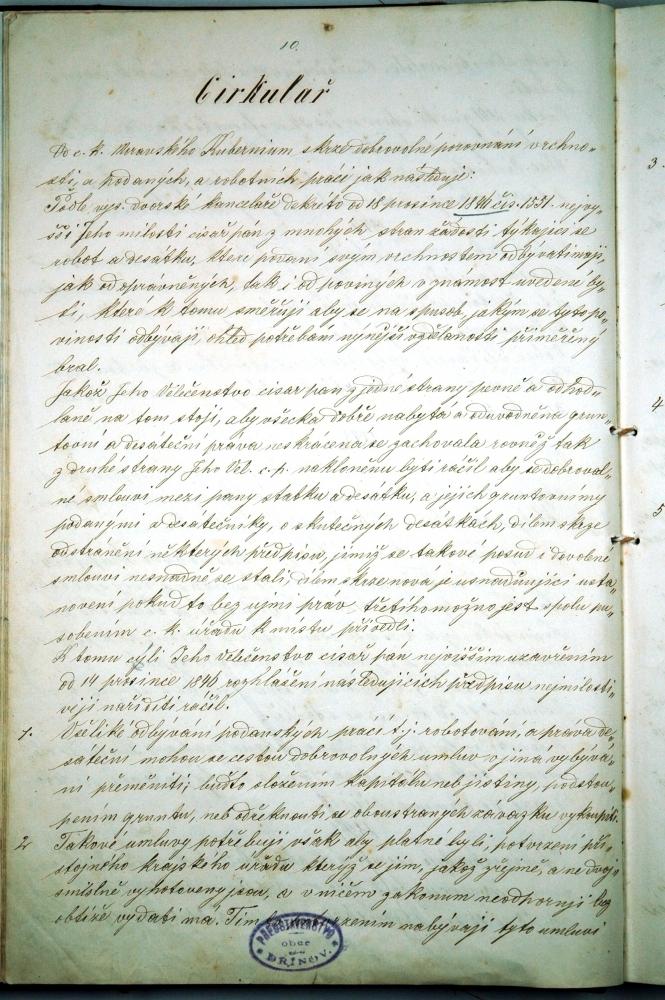 10.
Cirkulař
Do c. k. Moravského Kubernium skrze dobrovolné porovnání vrchno„
sti, a podaných, a robotních prací jak nasleduje:
Podle vys. dvorské kanceláře dekreto od 18 prosince 1846 čis. 1551. nejvy„
šší Jeho milosti cisař pán z mnohých stran žádosti týkajici se
robot a desátku, které podaní svým vrchnostem odbývati mají,
jak od opravněných, tak i od poviných v známost uvedene by„
ti, které k tomu směřují aby se na spusob, jakým se tyto po„
vinosti odbývají, ohled potřebám nynější vzdělanosti přiměřený
bral.
Jakož Jeho Veličenstvo cisař pan z jedné strany pevně a odhod„
laně na tom stojí, aby všecka dobře nabytá a oduvodněna grun„
tovní a desateční prava neskracena se zachovala rovněž tak
z druhé strany Jeho Vel. c. p. nakloněnu býti ráčil aby se dobrovol„
né smlouvi mezi pany statku a desátku, a jejich gruntovnimy
podanymi a desátečníky, o skutečných desátkach, dílem skrze
odstránění některých předpisu, jimiž se takové posud dovolené
smlouvi nesnadné se stali, dílem skrze nová je usnadňující usta„
novení pokud to bez ujmi práv třetího možno jest spolu pu„
sobením c. k. úřadu k místu přivedli.
K tomu cíli Jeho Veličenstvo cisař pan nejvišším uzavřením
od 14 prosince 1846 rozhlášení nasledujicich předpisu nejmilosti„
věji naříditi ráčil.
1. Všeliké odbývání podanských prací t. j. robotování, a práva de„
sáteční mohou se cestou dobrovolných umluv v jiná vybývá„
ní přeměniti, buďto složením kapitálu neb jistiny, podstou„
pením gruntu, neb odřeknouti se oboustraných závazku vykoupiti.
2. Takové umluvy potřebují však aby platné byli, potvrzení pří„
stojného krajského úřadu kterýž se jim, jakož zřejmě, a ne dvoj„
smislně vyhotoveny jsou, a v ničem zakonum neodpornji bez
obtíže vydati má. Tím potvrzením nabývají tyto umluvi
PŘEDSTAVENSTVO
obce
DŘÍNOV.
3.
4
5